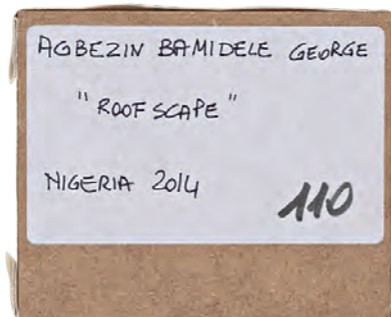 AGBEZIN BAMIDELE GEORGE
"ROOFSCAPE"
NIGERIA 2014
110